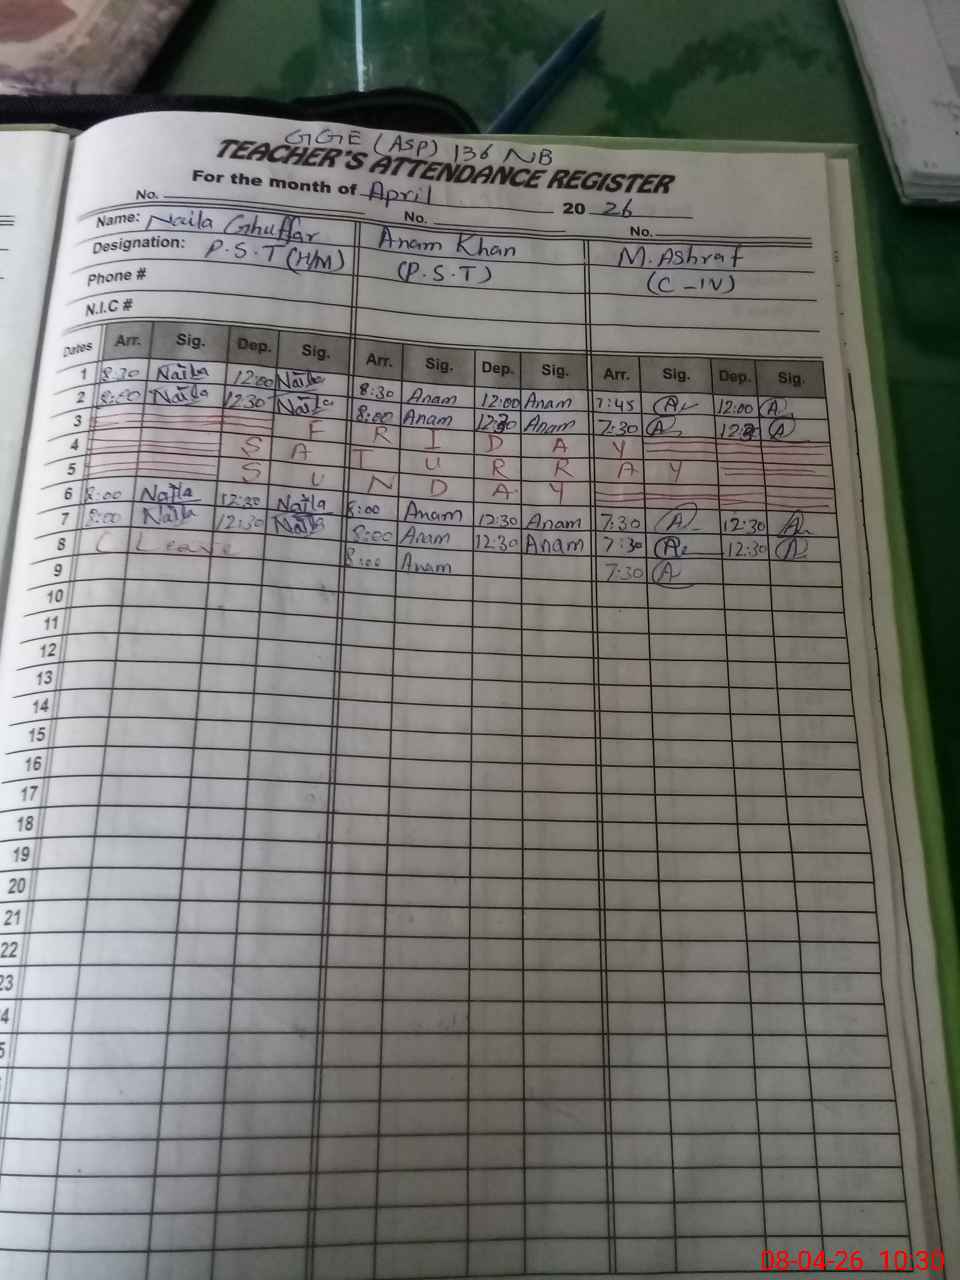 GGE (ASP) 136 NB
TEACHER'S ATTENDANCE REGISTER
For the month of April 20 26
No. No. No.
Name: Naila Ghuffar Anam Khan M. Ashraf
Designation: P.S.T (H/M) (P.S.T) (C-IV)
Phone #
N.I.C #
Dates Arr. Sig. Dep. Sig. Arr. Sig. Dep. Sig. Arr. Sig. Dep. Sig.
1 8:30 Naila 12:00 Naila 8:30 Anam 12:00 Anam 7:45 A 12:00 A
2 8:00 Naila 12:30 Naila 8:00 Anam 12:30 Anam 7:30 A 12:30 A
3 F R I D A Y
4 S A T U R R A Y
5 S U N D A Y
6 8:00 Naila 12:30 Naila 8:00 Anam 12:30 Anam 7:30 A 12:30 A
7 8:00 Naila 12:30 Naila 8:00 Anam 12:30 Anam 7:30 A 12:30 A
8 C Leave 8:00 Anam 7:30 A
9
10
11
12
13
14
15
16
17
18
19
20
21
22
23
4
5
08-04-26 10:30